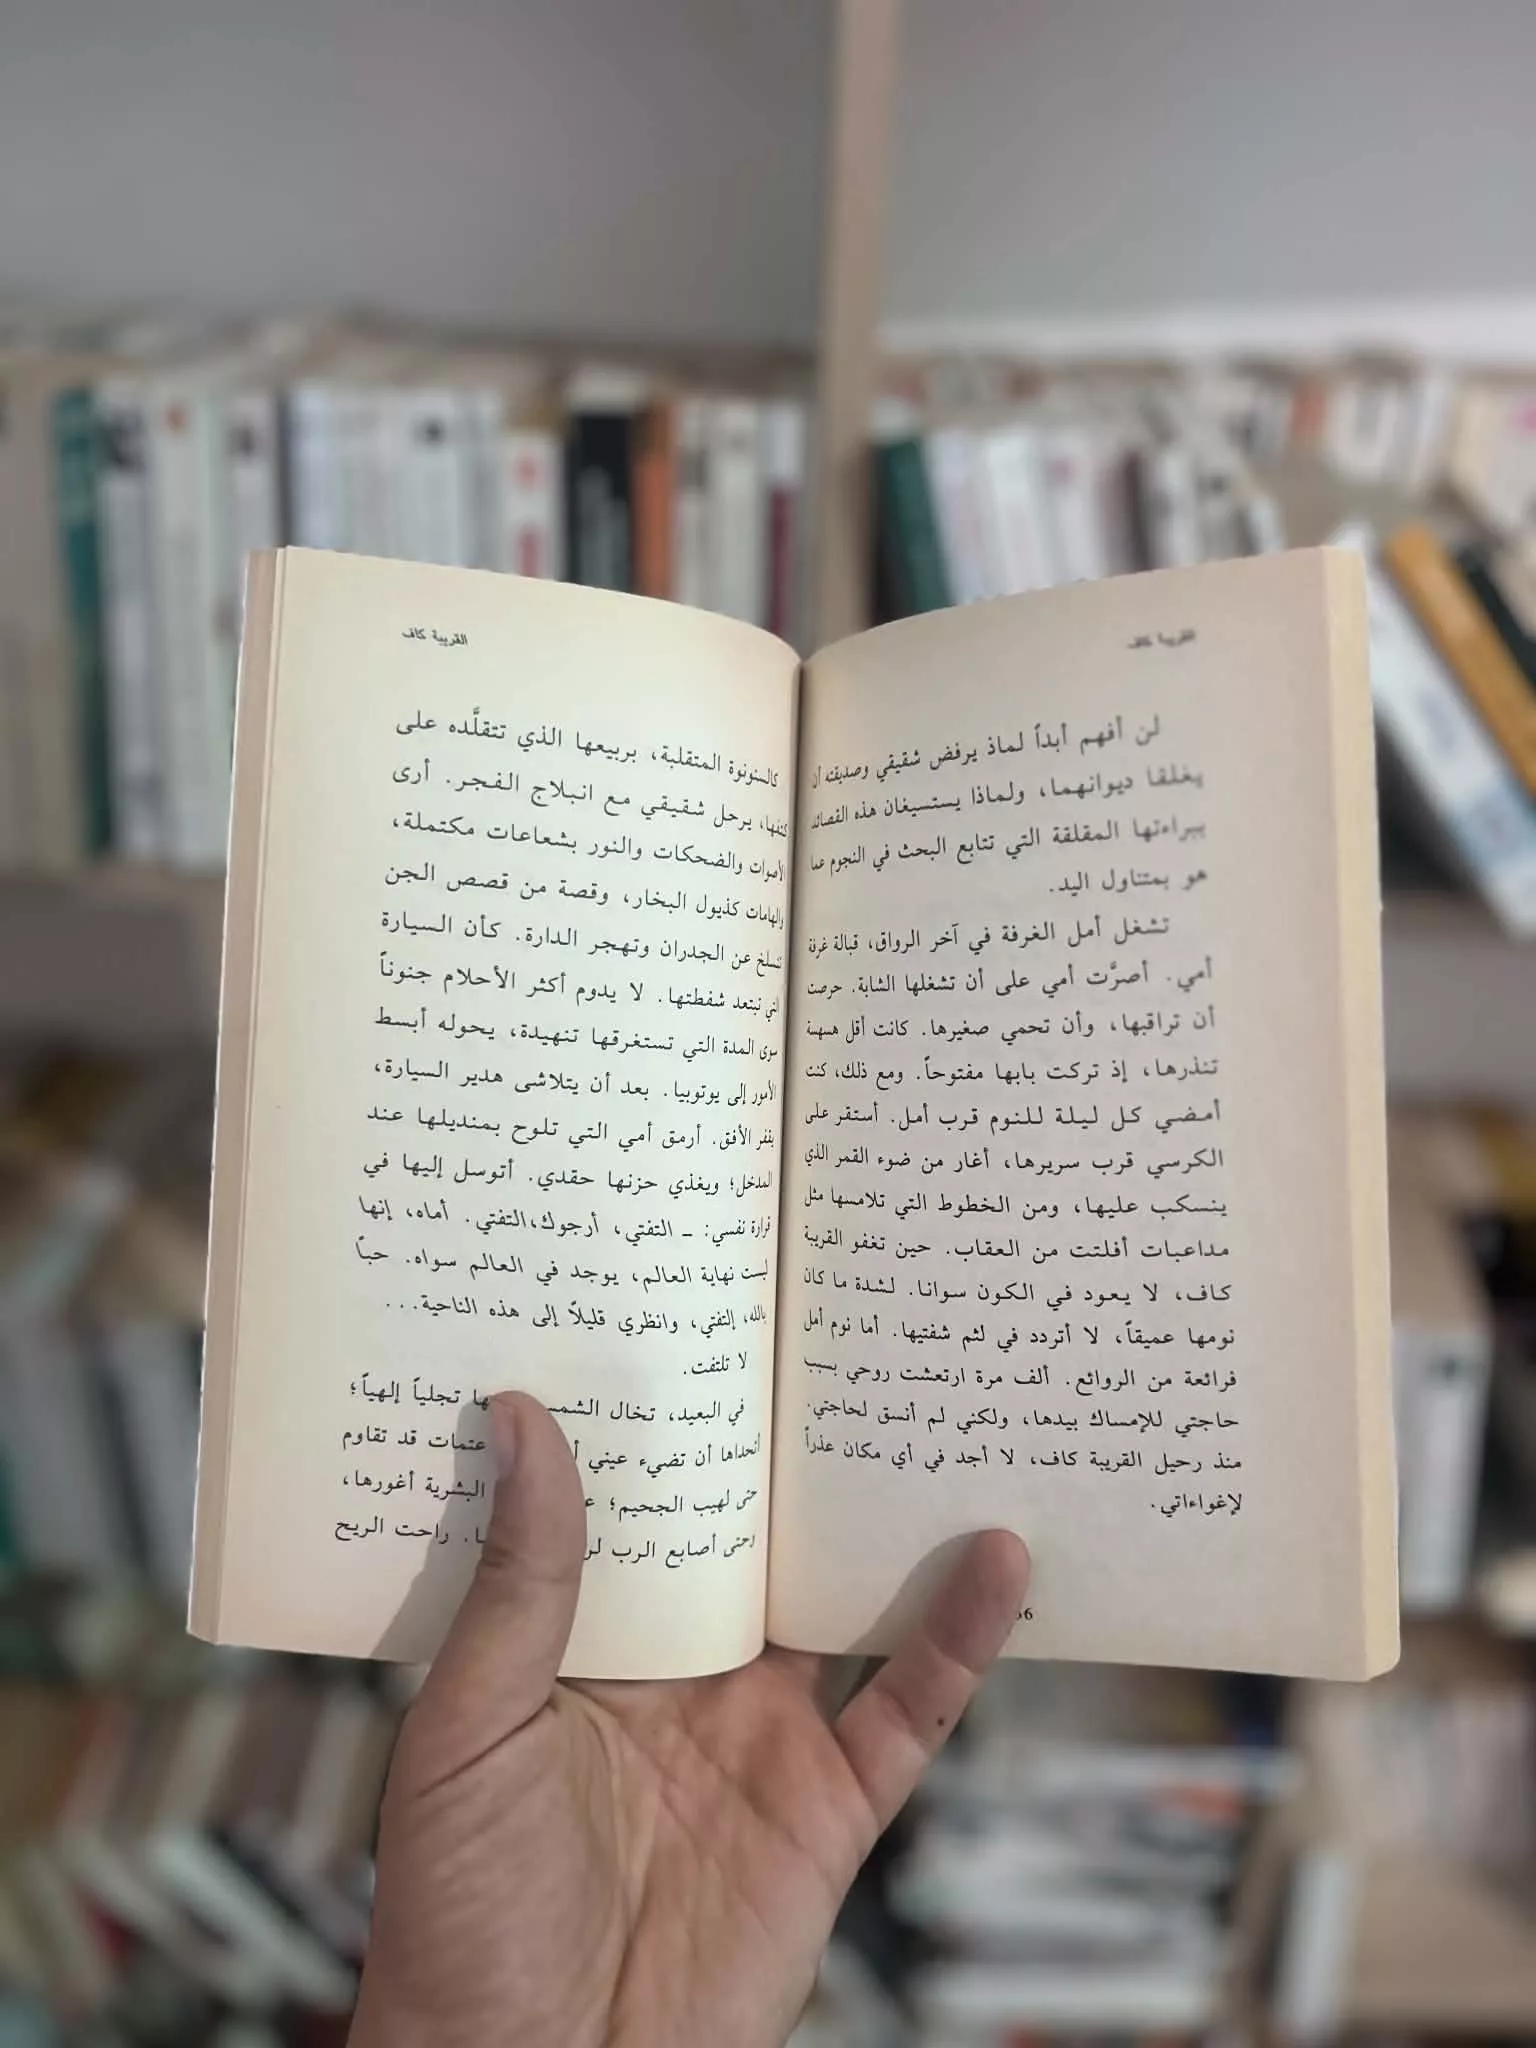 القريبة كاف
لن أفهم أبداً لماذ يرفض شقيقي وصديقته أن
يغلقا ديوانهما، ولماذا يستسيغان هذه القصائد
ببراءتها المقلقة التي تتابع البحث في النجوم عما
هو بمتناول اليد.
تشغل أمل الغرفة في آخر الرواق، قبالة غرفة
أمي. أصرَّت أمي على أن تشغلها الشابة. حرصت
أن تراقبها، وأن تحمي صغيرها. كانت أقل هسهسة
تنذرها، إذ تركت بابها مفتوحاً. ومع ذلك، كنت
أمضي كل ليلة للنوم قرب أمل. أستقر على
الكرسي قرب سريرها، أغار من ضوء القمر الذي
ينسكب عليها، ومن الخطوط التي تلامسها مثل
مداعبات أفلتت من العقاب. حين تغفو القريبة
كاف، لا يعود في الكون سوانا. لشدة ما كان
نومها عميقاً، لا أتردد في لثم شفتيها. أما نوم أمل
فرائعة من الروائع. ألف مرة ارتعشت روحي بسبب
حاجتي للإمساك بيدها، ولكني لم أنسق لحاجتي.
منذ رحيل القريبة كاف، لا أجد في أي مكان عذراً
لإغواءاتي.
القريبة كاف
كالسنونوة المتقلبة، بربيعها الذي تتقلَّده على
كتفها، يرحل شقيقي مع انبلاج الفجر. أرى
الأصوات والضحكات والنور بشعاعات مكتملة،
والهامات كذيول البخار، وقصة من قصص الجن
تنسلخ عن الجدران وتهجر الدارة. كأن السيارة
التي تبتعد شفطتها. لا يدوم أكثر الأحلام جنوناً
سوى المدة التي تستغرقها تنهيدة، يحوله أبسط
الأمور إلى يوتوبيا. بعد أن يتلاشى هدير السيارة،
يقفر الأفق. أرمق أمي التي تلوح بمنديلها عند
المدخل؛ ويغذي حزنها حقدي. أتوسل إليها في
قرارة نفسي: ـ التفتي، أرجوك،التفتي. أماه، إنها
ليست نهاية العالم، يوجد في العالم سواه. حباً
بالله، إلتفتي، وانظري قليلاً إلى هذه الناحية...
لا تلتفت.
في البعيد، تخال الشمس تجلياً إلهياً؛
أتحداها أن تضيء عيني عتمات قد تقاوم
حتى لهيب الجحيم؛ البشرية أغورها،
وحتى أصابع الرب راحت الريح